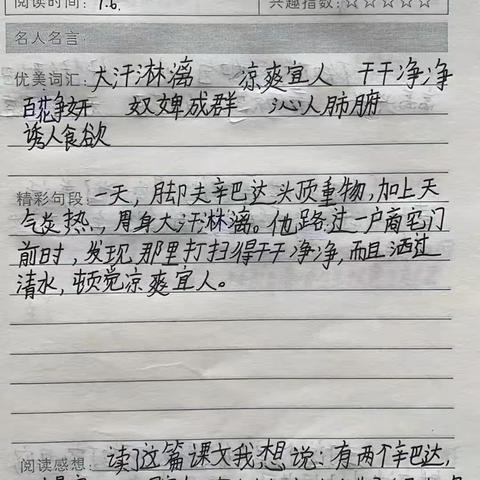 阅读时间：7.6.	兴趣指数：☆☆☆☆☆
名人名言：
优美词汇：大汗淋漓 凉爽宜人 干干净净
百花争妍 奴婢成群 沁人肺腑
诱人食欲
精彩句段：一天，脚夫辛巴达头顶重物，加上天
气炎热，周身大汗淋漓。他路过一户商宅门
前时，发现那里打扫得干干净净，而且洒过
清水，顿觉凉爽宜人。
阅读感想：读了这篇课文我想说：有两个辛巴达，